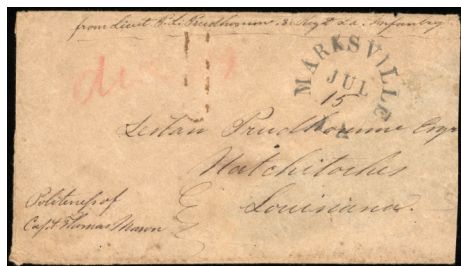 from Lieut P. L. Prudhomme 3 Regt La. Infantry
due
MARKSVILLE
JUL
15
La
Lestan Prudhomme Esqr
Natchitoches
Louisiana.
Politeness of
Capt Thomas Mason